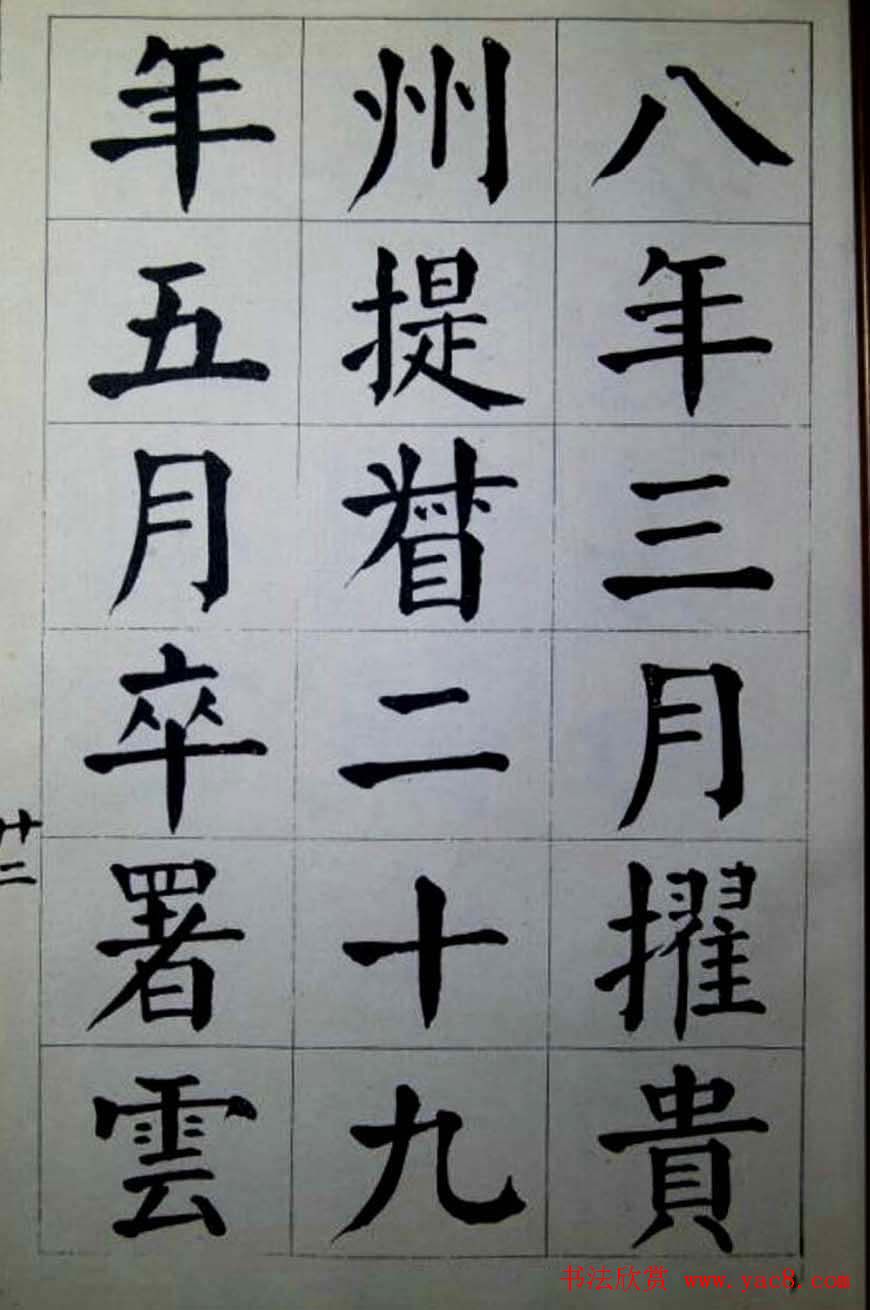 八年三月擢貴
州提督二十九
年五月卒署雲
廿二
书法欣赏 www.yac8.com